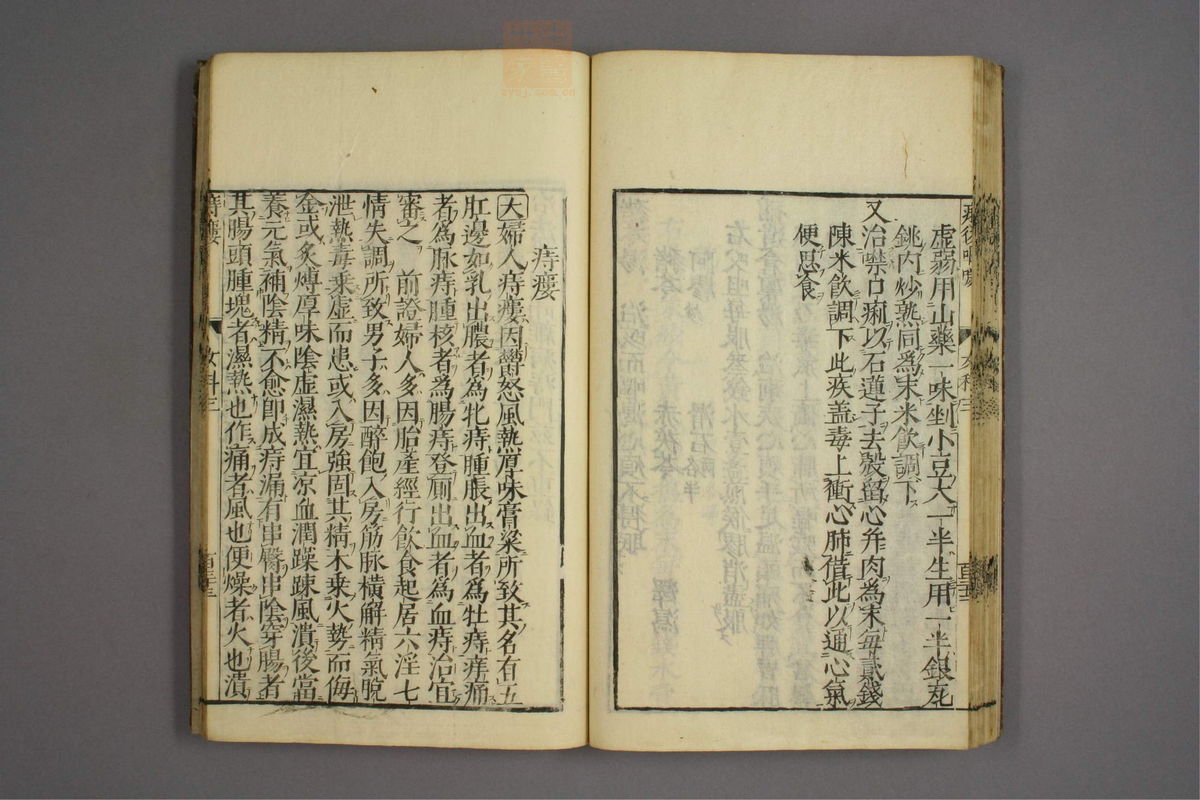 虛弱用山藥一味剉小豆大一半生用一半銀瓦
銚內炒熟同爲末米飲調下
又治噤口痢以石蓮子去殼留心并肉為末每貳錢
陳米飲調下此疾盖毒上衝心肺借此以通心氣
便思食
女科三
痔瘻
大婦人痔瘻因鬱怒風熱厚味膏粱所致其名有五
肛邊如乳出膿者為牝痔腫脹出血者為牡痔痒痛
者為脉痔腫核者為腸痔登厠出血者為血痔治宜
審之 前證婦人多因胎產經行飲食起居六淫七
情失調所致男子多因醉飽入房筋脉橫解精氣脫
泄熱毒乘虛而患或入房強固其精木乘火勢而侮
金或炙煿厚味陰虛濕熱宜凉血潤躁疎風潰後當
養元氣補陰精不愈即成痔漏有串臀串陰穿腸者
其腸頭腫塊者濕熱也作痛者風也便燥者火也潰
痔瘻
女科三
zysj.com.cn